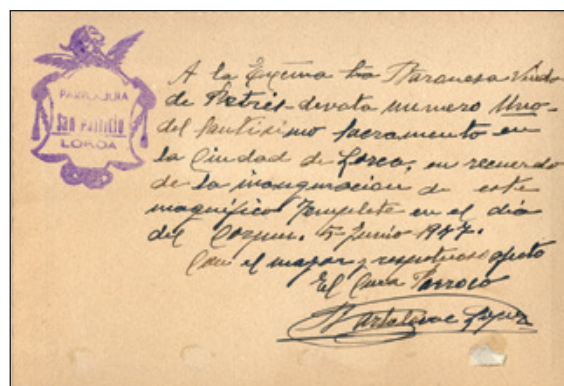 PARROQUIA
San Patricio
LORCA
A la Excma Sra Baronesa Viuda
de Petrés - devota numero Uno -
del Santisimo Sacramento en
la Ciudad de Lorca, en recuerdo
de la inauguracion de este
magnifico Templete en el dia
del Corpus. 5-Junio 1947.
Con el mayor y respetuoso afecto
El Cura Parroco
Bartolome Lopez